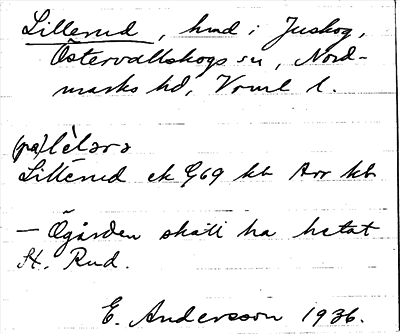 Lillerud, hmd i Juskog,
Östervallskogs sn, Nord-
marks hd, Vrml l.
(på) lèlərə
Lillerud ek G69 kb Arr kb
— Ögården skall ha hetat
St. Rud.
E. Andersson 1936.